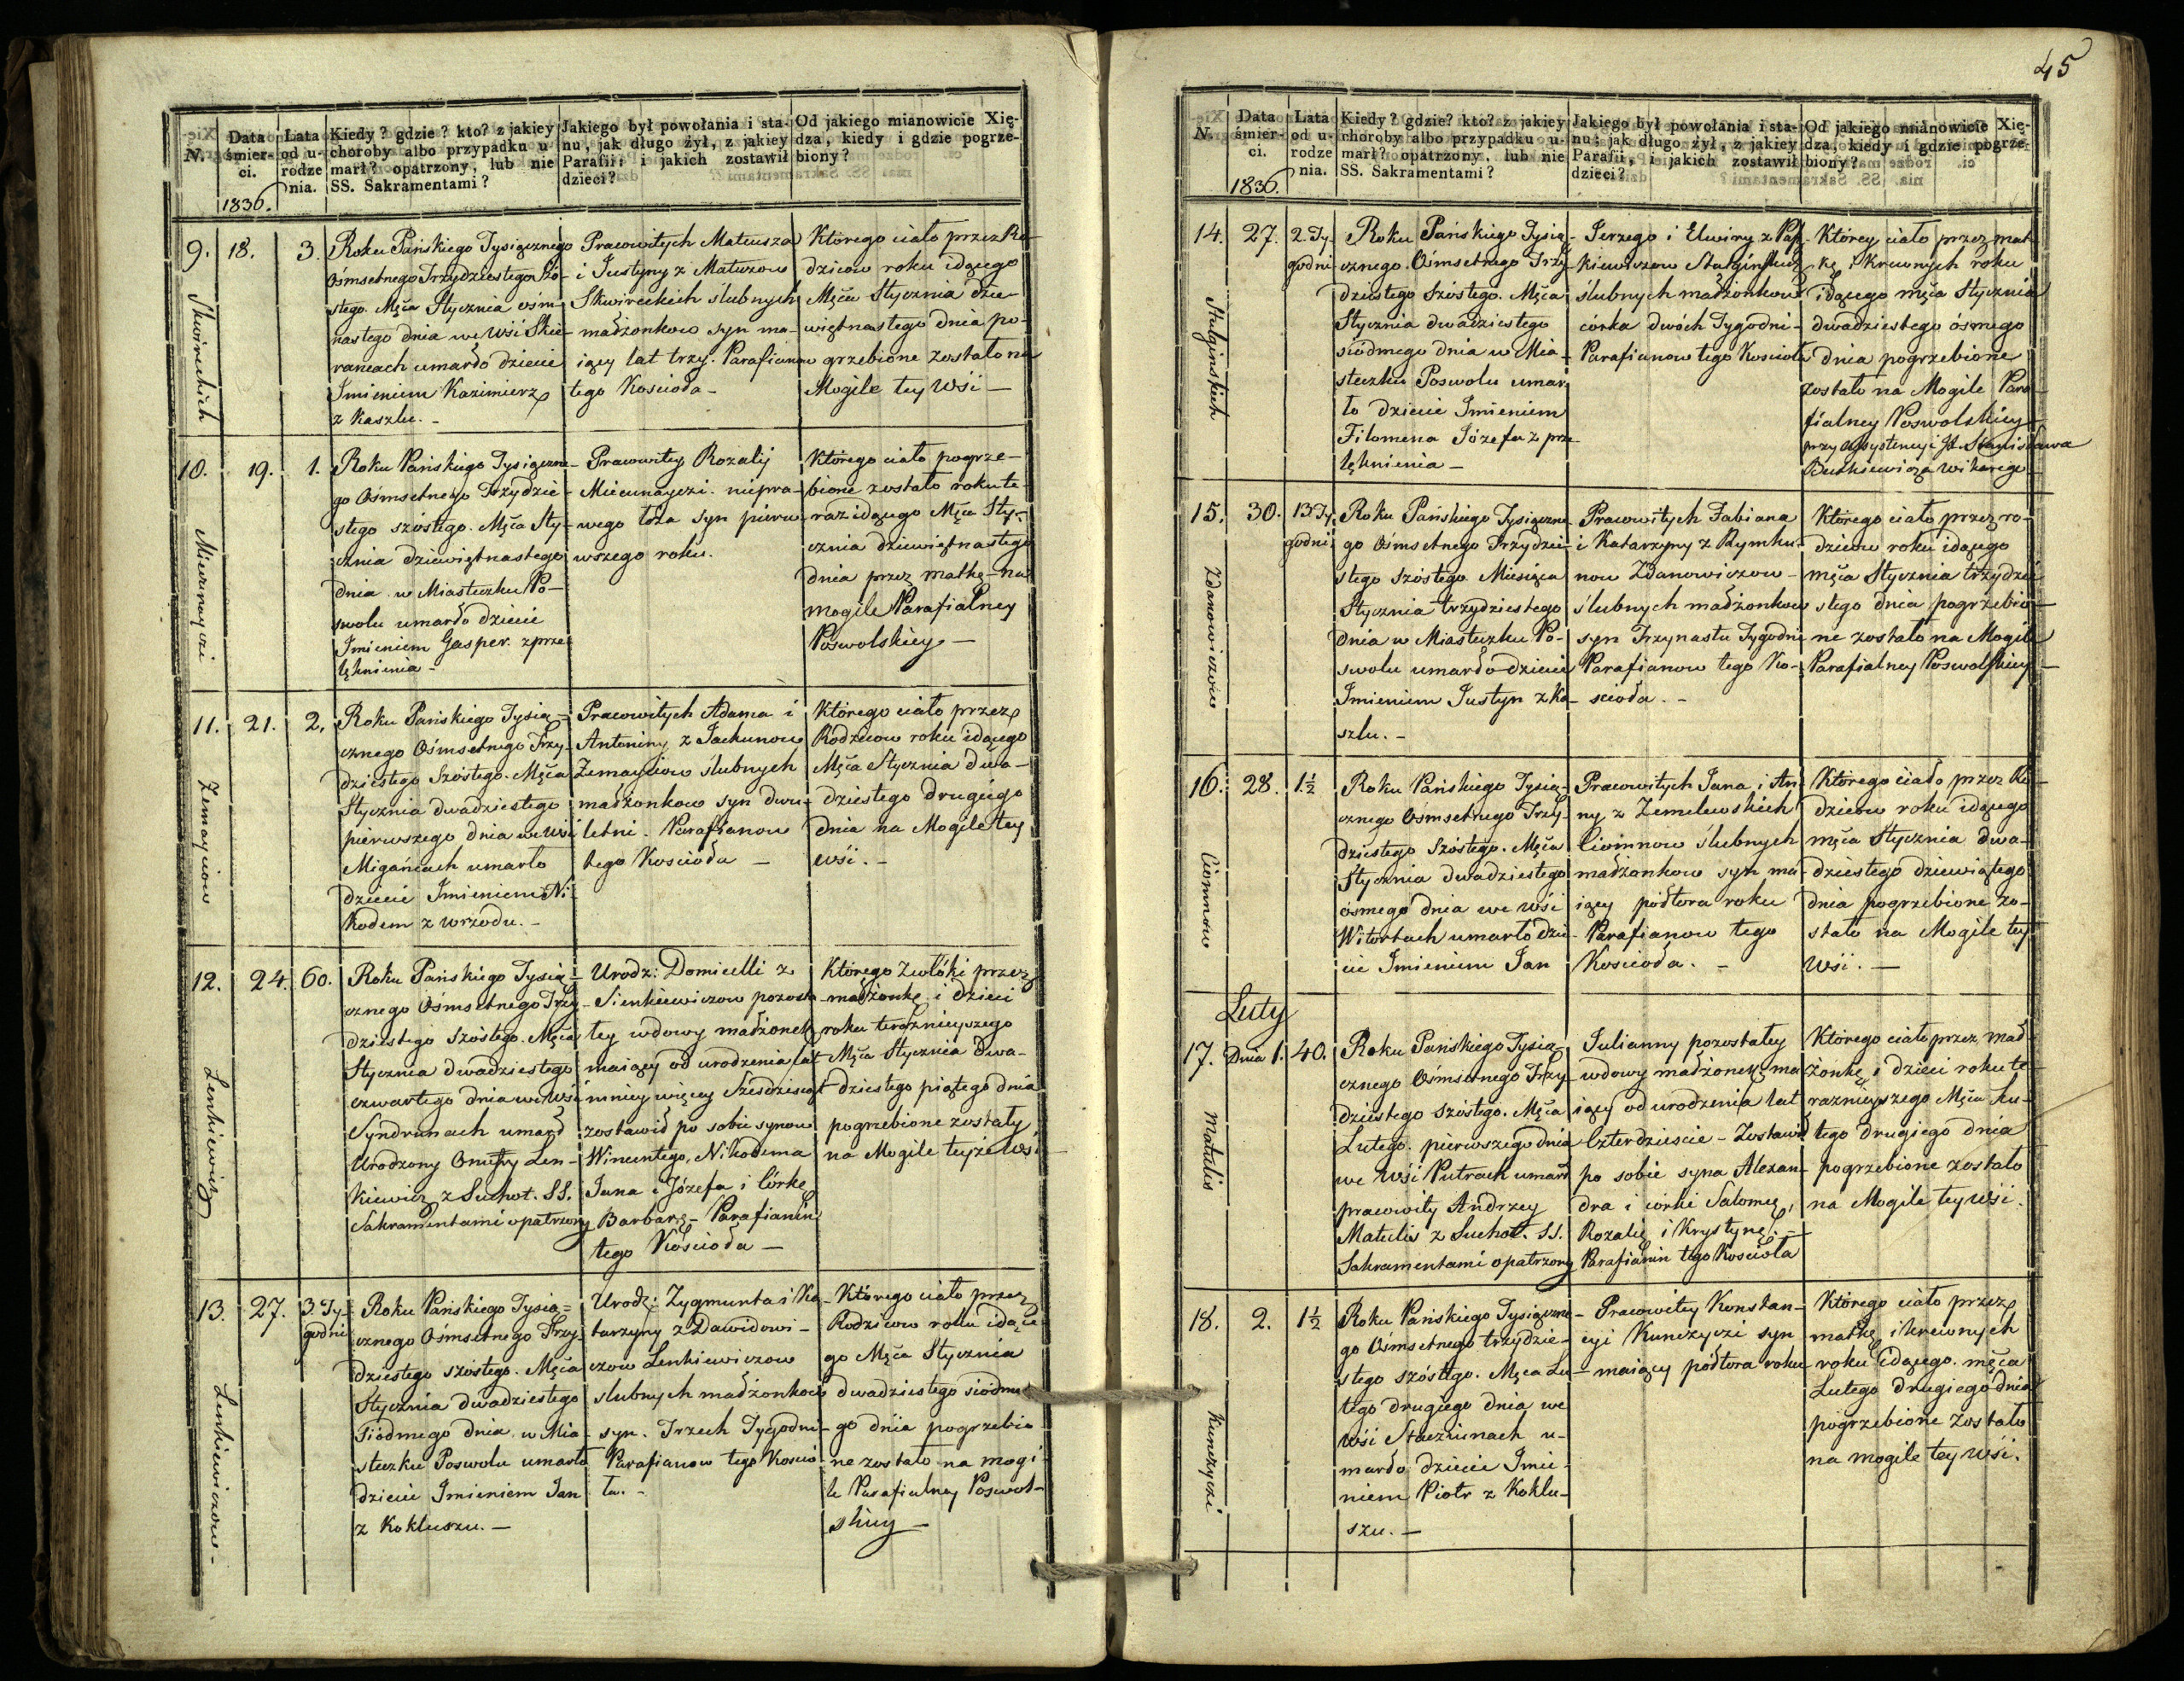 45
N.
Data śmierci.
1836.
Lata od urodzenia.
Kiedy? gdzie? kto? z jakiey
choroby albo przypadku u-
marł? opatrzony, lub nie
SS. Sakramentami?
Jakiego był powołania i sta-
nu, jak długo żył, z jakiey
Parafii, i jakich zostawił
dzieci?
Od jakiego mianowicie Xię-
dza, kiedy i gdzie pogrze-
biony?
9.
Skwireckich
18.
3.
Roku Pańskiego Tysiącznego
Ośmsetnego Trzydziestego Szó-
stego. Mca Stycznia ośm-
nastego dnia we Wśi Skie-
raniach umarło dziecie
Imieniem Kazimierz
z Kaszlu. -
Pracowitych Mateusza
i Justyny z Matuzow
Skwireckich ślubnych
małżonkow syn ma-
iący lat trzy. Parafianow
tego Kościoła -
Którego ciało przez Ro-
dzicow roku idącego
Mca Stycznia dzie-
więtnastego dnia po-
grzebione zostało na
Mogile tey Wśi -
10.
19.
1.
Roku Pańskiego Tysiączne-
go Ośmsetnego Trzydzie-
stego szóstego. Mca Sty-
cznia dziewiętnastego
dnia w Miasteczku Po-
swolu umarło dziecie
Imieniem Gasper z prze-
lęknienia -
Pracowitey Rozalij
niepra-
wego łoża syn pierw-
wszego roku.
Którego ciało pogrze-
bione zostało roku te-
raz idącego Mca Sty-
cznia dziewiętnastego
dnia przez matkę na
mogile Parafialney
Poswolskiey -
11.
Zemayciow
21.
2.
Roku Pańskiego Tysią-
cznego Ośmsetnego Trzy-
dziestego Szóstego. Mca
Stycznia dwadziestego
pierwszego dnia we Wśi
Migańcach umarło
dziecie Imieniem Ni-
kodem z wrzodu. -
Pracowitych Adama i
Antoniny z Jachunow
Zemayciow ślubnych
małżonkow syn dwu-
letni. Parafianow
tego Kościoła -
Którego ciało przez
Rodzicow roku idącego
Mca Stycznia dwa-
dziestego drugiego
dnia na Mogile tey
wśi. -
12.
Lenkiewicz
24.
60.
Roku Pańskiego Tysią-
cznego Ośmsetnego Trzy-
dziestego szóstego. Mca
Stycznia dwadziestego
czwartego dnia we Wśi
Syndrunach umarł
Urodzony Onufry Len-
kiewicz z Suchot. SS.
Sakramentami opatrzony
Urodz: Domicelli z
Sienkiewiczow pozosta-
łey wdowy małżonek
maiący od urodzenia lat
mniey więcey Sześdziesiąt
zostawił po sobie synow
Wincentego, Nikodema
Jana i Józefa i Córkę
Barbarę - Parafianin
tego Kościoła -
Którego Zwłóki przez
małżonkę i dzieci
roku teraźnieyszego
Mca Stycznia dwa-
dziestego piątego dnia
pogrzebione zostały
na Mogile teyże Wśi
13.
Lenkiewiczow -
27.
3 Ty-
godni
Roku Pańskiego Tysią-
cznego Ośmsetnego Trzy-
dziestego szóstego. Mca
Stycznia dwadziestego
siódmego dnia w Mia-
steczku Poswolu umarło
dziecie Imieniem Jan
z Kokluszu. -
Urodz: Zygmunta i Ka-
tarzyny z Dawidowi-
czow Lenkiewiczow
slubnych małżonkow
syn. Trzech Tygodni-
Parafianow tego Kościo-
ła. -
Którego ciało przez
Rodzicow roku idące-
go Mca Stycznia
dwadziestego siódme-
go dnia pogrzebio-
ne zostało na mogi-
le Parafialney Poswol-
skiey -
N.
Data śmierci.
1836.
Lata od urodzenia.
Kiedy? gdzie? kto? z jakiey
choroby albo przypadku u-
marł? opatrzony, lub nie
SS. Sakramentami?
Jakiego był powołania i sta-
nu, jak długo żył, z jakiey
Parafii, i jakich zostawił
dzieci?
Od jakiego mianowicie Xię-
dza, kiedy i gdzie pogrze-
biony?
14.
Stulginskich
27.
2. Ty-
godni
Roku Pańskiego Tysią-
cznego. Ośmsetnego Trzy-
dziestego Szóstego. Mca
Stycznia dwadziestego
siódmego dnia w Mia-
steczku Poswolu umar-
ło dziecie Imieniem
Filomena Józefa z prze-
lęknienia -
Jerzego i Elwiry z
ślubnych małżonkow
córka dwóch Tygodni-
Parafianow tego Kościoła
Którey ciało przez mat-
kę i krewnych roku
idącego mca Stycznia
dwadziestego ósmego
dnia pogrzebione
zostało na Mogile Para-
fialney Poswolskiey
przy assystencyi JX. Stanisława
Butkiewicza Wikarego
15.
Zdanowiczow
30.
13 Ty-
godni
Roku Pańskiego Tysiączne-
go Ośmsetnego Trzydzie-
stego Szóstego Miesiąca
Stycznia trzydziestego
dnia w Miasteczku Po-
swolu umarło dziecie
Imieniem Justyn z Ka-
szlu. -
Pracowitych Fabiana
i Katarzyny z Rymku-
now Zdanowiczow -
ślubnych małżonkow
syn Trzynastu Tygodni
Parafianow tego Ko-
scioła. -
Którego ciało przez ro-
dzicow roku idącego
mca Stycznia trzydzie-
stego dnia pogrzebio-
ne zostało na Mogile
Parafialney Poswolskiey
16.
Ciomnow
28.
1½
Roku Pańskiego Tysią-
cznego Ośmsetnego Trzy-
dziestego Szóstego. Mca
Stycznia dwadziestego
ósmego dnia we wśi
Witortach umarło dzie-
cie Imieniem Jan
Pracowitych Jana i An-
ny z Zemelewskich
Ciomnow ślubnych
małżonkow syn ma-
iący półtora roku
Parafianow tego
Kościoła. -
Którego ciało przez Ro-
dzicow roku idącego
mca Stycznia dwa-
dziestego dziewiątego
dnia pogrzebione zo-
stało na Mogile tey
Wśi. -
Luty
17.
Matulis
Dnia 1.
40.
Roku Pańskiego Tysią-
cznego Ośmsetnego Trzy-
dziestego szóstego. Mca
Lutego. pierwszego dnia
we Wśi Putrach umarł
pracowity Andrzey
Matulis z Suchot. SS.
Sakramentami opatrzony
Julianny pozostałey
wdowy małżonek ma-
iący od urodzenia lat
Czterdzieście - Zostawił
po sobie syna Alexan-
dra i córki Salomeę,
Rozalię i Krystynę. -
Parafianin tego Kościoła
Którego ciało przez mał-
żonkę i dzieci roku te-
raznieyszego Mca Lu-
tego drugiego dnia
pogrzebione zostało
na Mogile tey wśi.
18.
Kunczyczi
2.
1½
Roku Pańskiego Tysiączne-
go Ośmsetnego trzydzie-
stego szóstego. Mca Lu-
tego drugiego dnia we
wśi Staziunach u-
marło dziecie Imie-
niem Piotr z Koklu-
szu. -
Pracowitey Konstan-
cyi Kunczyczi syn
maiący półtora roku
Którego ciało przez
matkę i krewnych
roku idącego. mca
Lutego drugiego dnia
pogrzebione zostało
na mogile tey wśi.